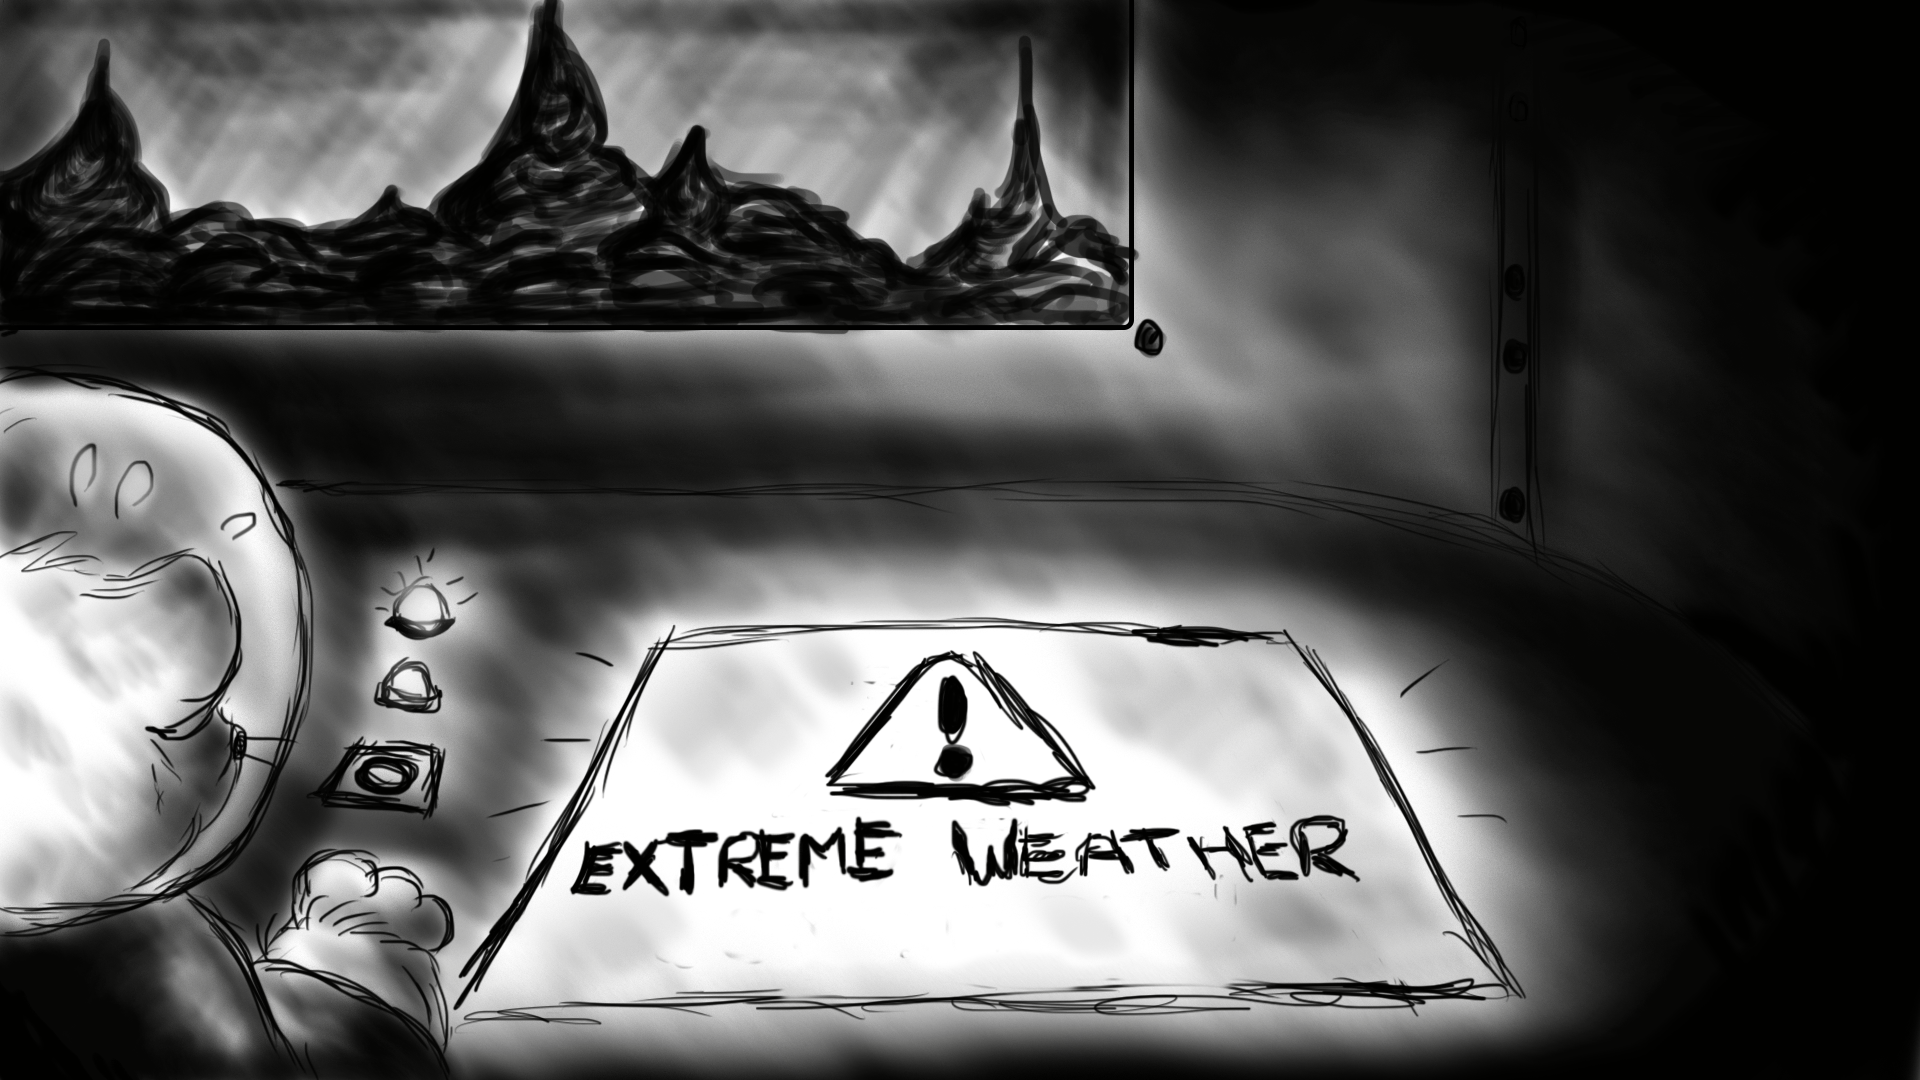 !
EXTREME WEATHER